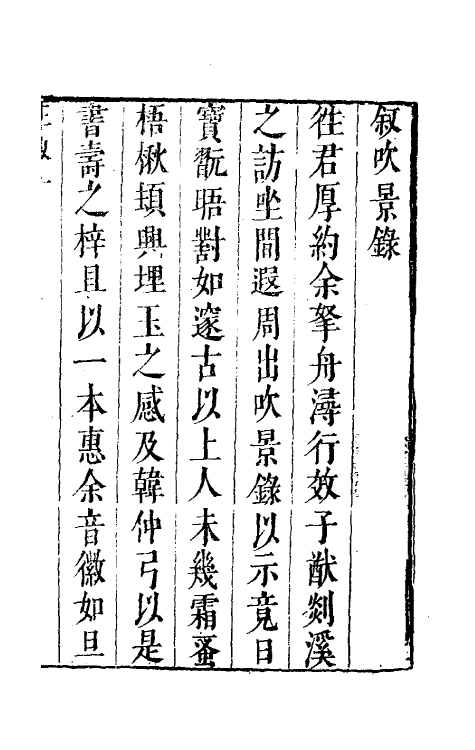 叙吹景錄
徃君厚約余拏舟潯行效子猷剡溪
之訪坐間遐周出吹景錄以示竟日
寶翫晤對如邃古以上人未幾霜蚤
梧楸頻興埋玉之感及韓仲弓以是
書壽之梓且以一本惠余音徽如旦